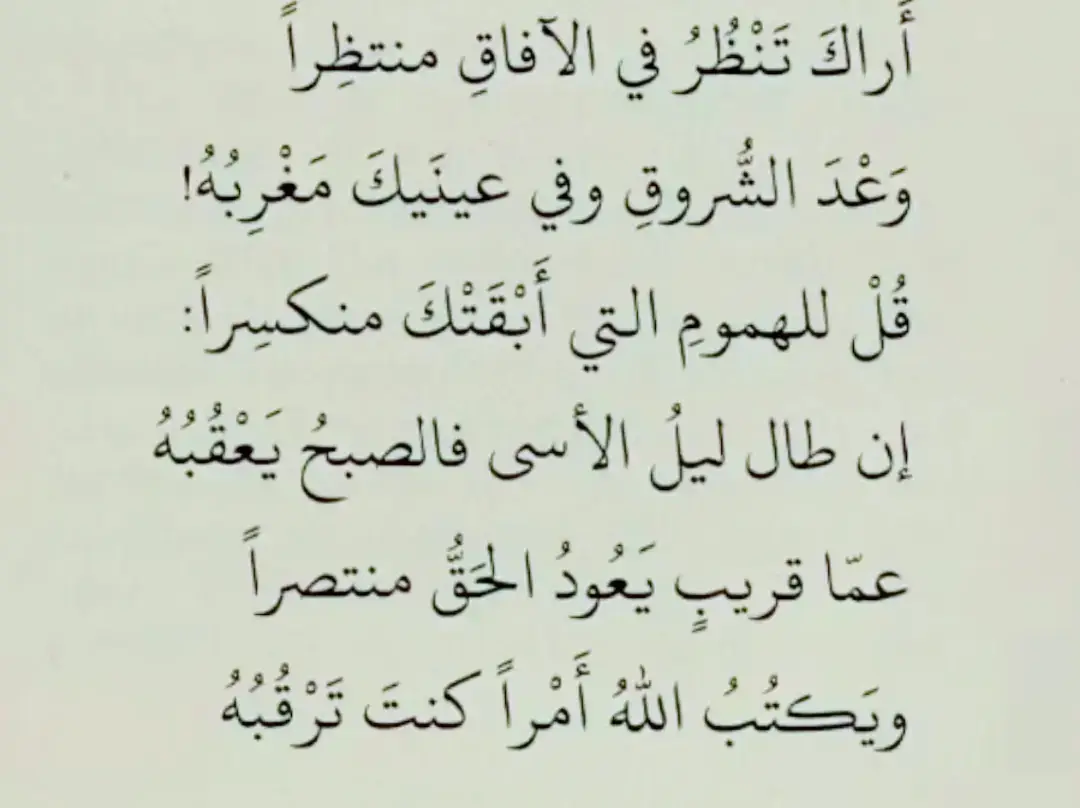 أَراكَ تَنْظُرُ في الآفاقِ منتظِراً
وَعْدَ الشُّروقِ وفي عينَيكَ مَغْرِبُهُ!
قُلْ للهمومِ التي أَبْقَتْكَ منكسِراً:
إن طال ليلُ الأسى فالصبحُ يَعْقُبُهُ
عمّا قريبٍ يَعُودُ الحَقُّ منتصراً
ويَكتُبُ اللهُ أَمْراً كنتَ تَرْقُبُهُ